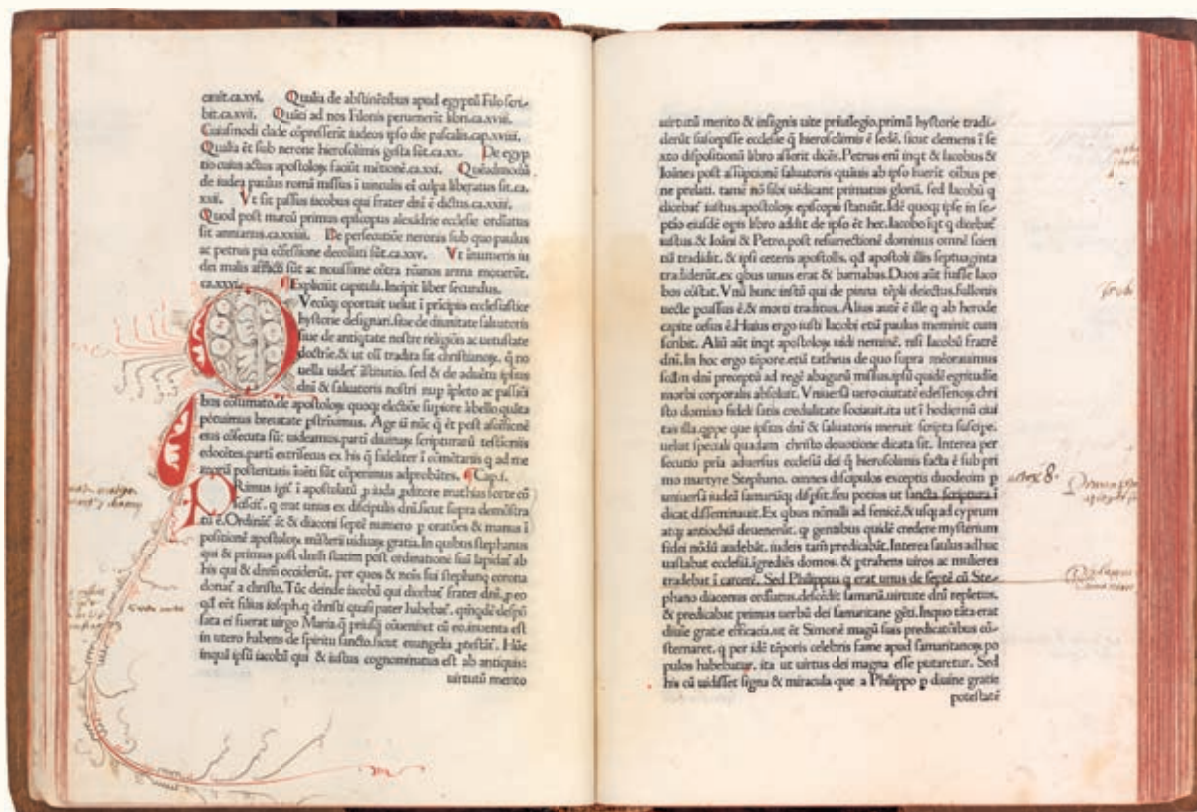 cauit.ca.xvi. Qualia de abstinētibus apud egyptū Filo scri-
bit.ca.xvii. Quāti ad nos Filonis peruenerīt libri.ca.xviii.
Cuiusmodi clade cōpresserit iudeos ipso die paschalis.cap.xviiii.
Qualia ēt sub nerone hierosolimis gesta sūt.ca.xx. De egyp
tio cuius actus apostoloꝝ faciūt mētionē.ca.xxi. Quēadmodū
de iudea paulus romā missus ī uinculis eī culpa liberatus sit.ca.
xxii. Vt sit passus iacobus qui frater dnī ē dictus.ca.xxiii.
Quod post marcū primus episcopus alexādrie ecclesie ordīatus
sit annianus.ca.xxiiii. De persecutiōe neronis sub quo paulus
ac petrus pia cōfessione decollati sūt.ca.xxv. Vt inumeris iu
dei malis afflicti sūt ac nouissime cōtra rōanos arma mouerūt.
ca.xxvi. Expliciūt capitula. Incipit liber secundus.
Vecūqꝫ oportuit uelut ī prīcipiis ecclesiastice
hystorie designari. siue de diuinitate saluatoris
siue de antiqtate nostre religiōis ac uetustate
doctrīe.& ut olī tradita sit christianoꝝ. q̄ no
uella uideʳ īstitutio. sed & de aduētu ipsius
dnī & saluatoris nostri nup īpleto ac passiōi
bos cōsumato.de apostoloꝝ quoqꝫ electiōe supiore libello quāta
potuimus breuitate pstrīximus. Age sī nūc q̄ ēt post ascēsionē
eius cōsecuta sūt uideamus.parti diuinaꝝ scripturarū testimōiis
edocētes.parti extrīsecus ex his q̄ fideliter ī cōmētariis q ad me
moriā posteritatis īuēti sūt cōperimus adprobātes. Cap.i.
PRimus igiʳ ī apostolatū p iuda pditore mathias sorte cō
sciscīt. q erat unus ex discipulis dnī.sicut supra demōstra
tū ē.Ordināt ēt & diaconi septē numero p oratōes & manus ī
positionē apostoloꝝ mīsterii uiduaꝝ gratia. In quibus stephanus
qui & primus post dnm statim post ordinatione suā lapidaʳ ab
his qui & dnm occiderūt. per quos & noīs sui stephanus corona
donaʳ a christo. Tūc deinde iacobū qui dicebaʳ frater dnī. p eo
qd eēt filius ioseph.q christi quasi pater habebaʳ. qm̄qdē despō
sata ei fuerat uirgo Maria.q̄ priusqꝫ cōueniret cū eo.inuenta est
in utero habens de spiritu sancto.sicut euangelia ptestāʳ. Hūc
inquā ipsū iacobū qui & iustus cognominatus est ab antiquis:
uirtutū merito
uirtutū merito & insignis uite priuilegio.primū hystorie tradi-
derūt suscepisse ecclesie q̄ hierosolimis ē sedē, sicut clemens ī se
xto dispositionū libro asserit dicēs. Petrus enī inqt & Iacobus &
Ioānes post assūptionē saluatoris quāuis ab ipso fuerīt oībus pe
ne prelati. tamē nō sibi uīdicant primatus gloriā. sed Iacobū q
dicebaʳ iustus.apostoloꝝ episcopū statuūt. Idē quoqꝫ ipse in se-
ptīo eiusdē opis libro addit de ipso ēt hec. Iacobo īqt q dicebaʳ
iustus & Ioāni & Petro.post resurrectionē dominus omnē scien
tiā tradidit. & ipsi ceteris apostolis. qd apostoli illis septuaginta
tradiderūt.ex qbus unus erat & barnabas. Duos aūt fuisse Iaco
bos cōstat. Vnū hunc iustū qui de pinna tēpli deiectus.fullonis
uecte pcussus ē.& morti traditus. Alius autē ē ille q ab herode
capite cesus ē.Huius ergo iusti Iacobi etiā paulus meminit cum
scribit. Aliū aūt inqt apostoloꝝ uidi neminē, nisi Iacobū fratrē
dnī. In hoc ergo tēpore.etiā tathæus de quo supra mēorauimus
scdm dnī preceptū ad regē abagarū missus.ipsū quidē egritudīe
morbi corporalis absoluit. Vniuersā uero ciuitatē edessenoꝝ chri
sto domino fideli satis credulitate sociauit.ita ut ī hodiernū ciui
tas illa.qppe que ipsius dnī & saluatoris meruit scripta suscipe.
uelut speciali quadam christo deuotione dicata sit. Interea per
secutio pria aduersus ecclesiā dei q̄ hierosolimis facta ē sub pri
mo martyre Stephano. omnes discipulos exceptis duodecim p
uniuersā iudeā samariāqꝫ dispsit.seu potius ut sancta scriptura ī
dicat disseminauit. Ex qbus nōnulli ad fenicē.& usqꝫ ad cyprum
atqꝫ antiochiā deuenerūt. qꝫ gentibus quidē credere mysterium
fidei nōdū audebāt. iudeis tam̄ predicabāt. Interea saulus adhuc
uastabat ecclesiā.īgrediēs domos. & ptrahens uiros ac mulieres
tradebat ī carcerē. Sed Philippus q erat unus de septē cū Ste-
phano diaconus ordīatus.descēdit samariā.uirtute dnī repletus,
& predicabat primus uerbū dei samaritane gēti. Inquo tāta erat
diuīe gratīe efficacia.ut ēt Simonē magū suis predicatiōibus cō-
sternaret. q per idē tēporis celebris fame apud samaritanos.po
pulos habebatur. ita ut uirtus dei magna esse putaretur. Sed
his cū uidisset signa & miracula que a Philippo p diuine gratie
potestatē
actor 8.